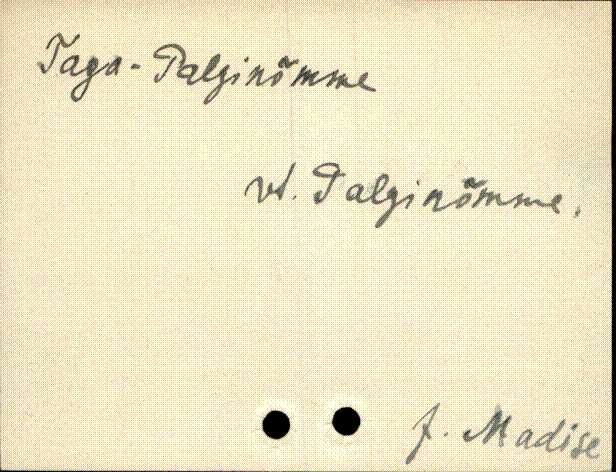 Taga-Palginõmme
vt. Palginõmme.
J. Madise